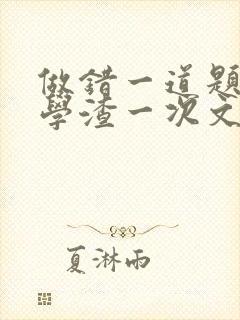 做錯一道題
學渣一次文
夏淋雨